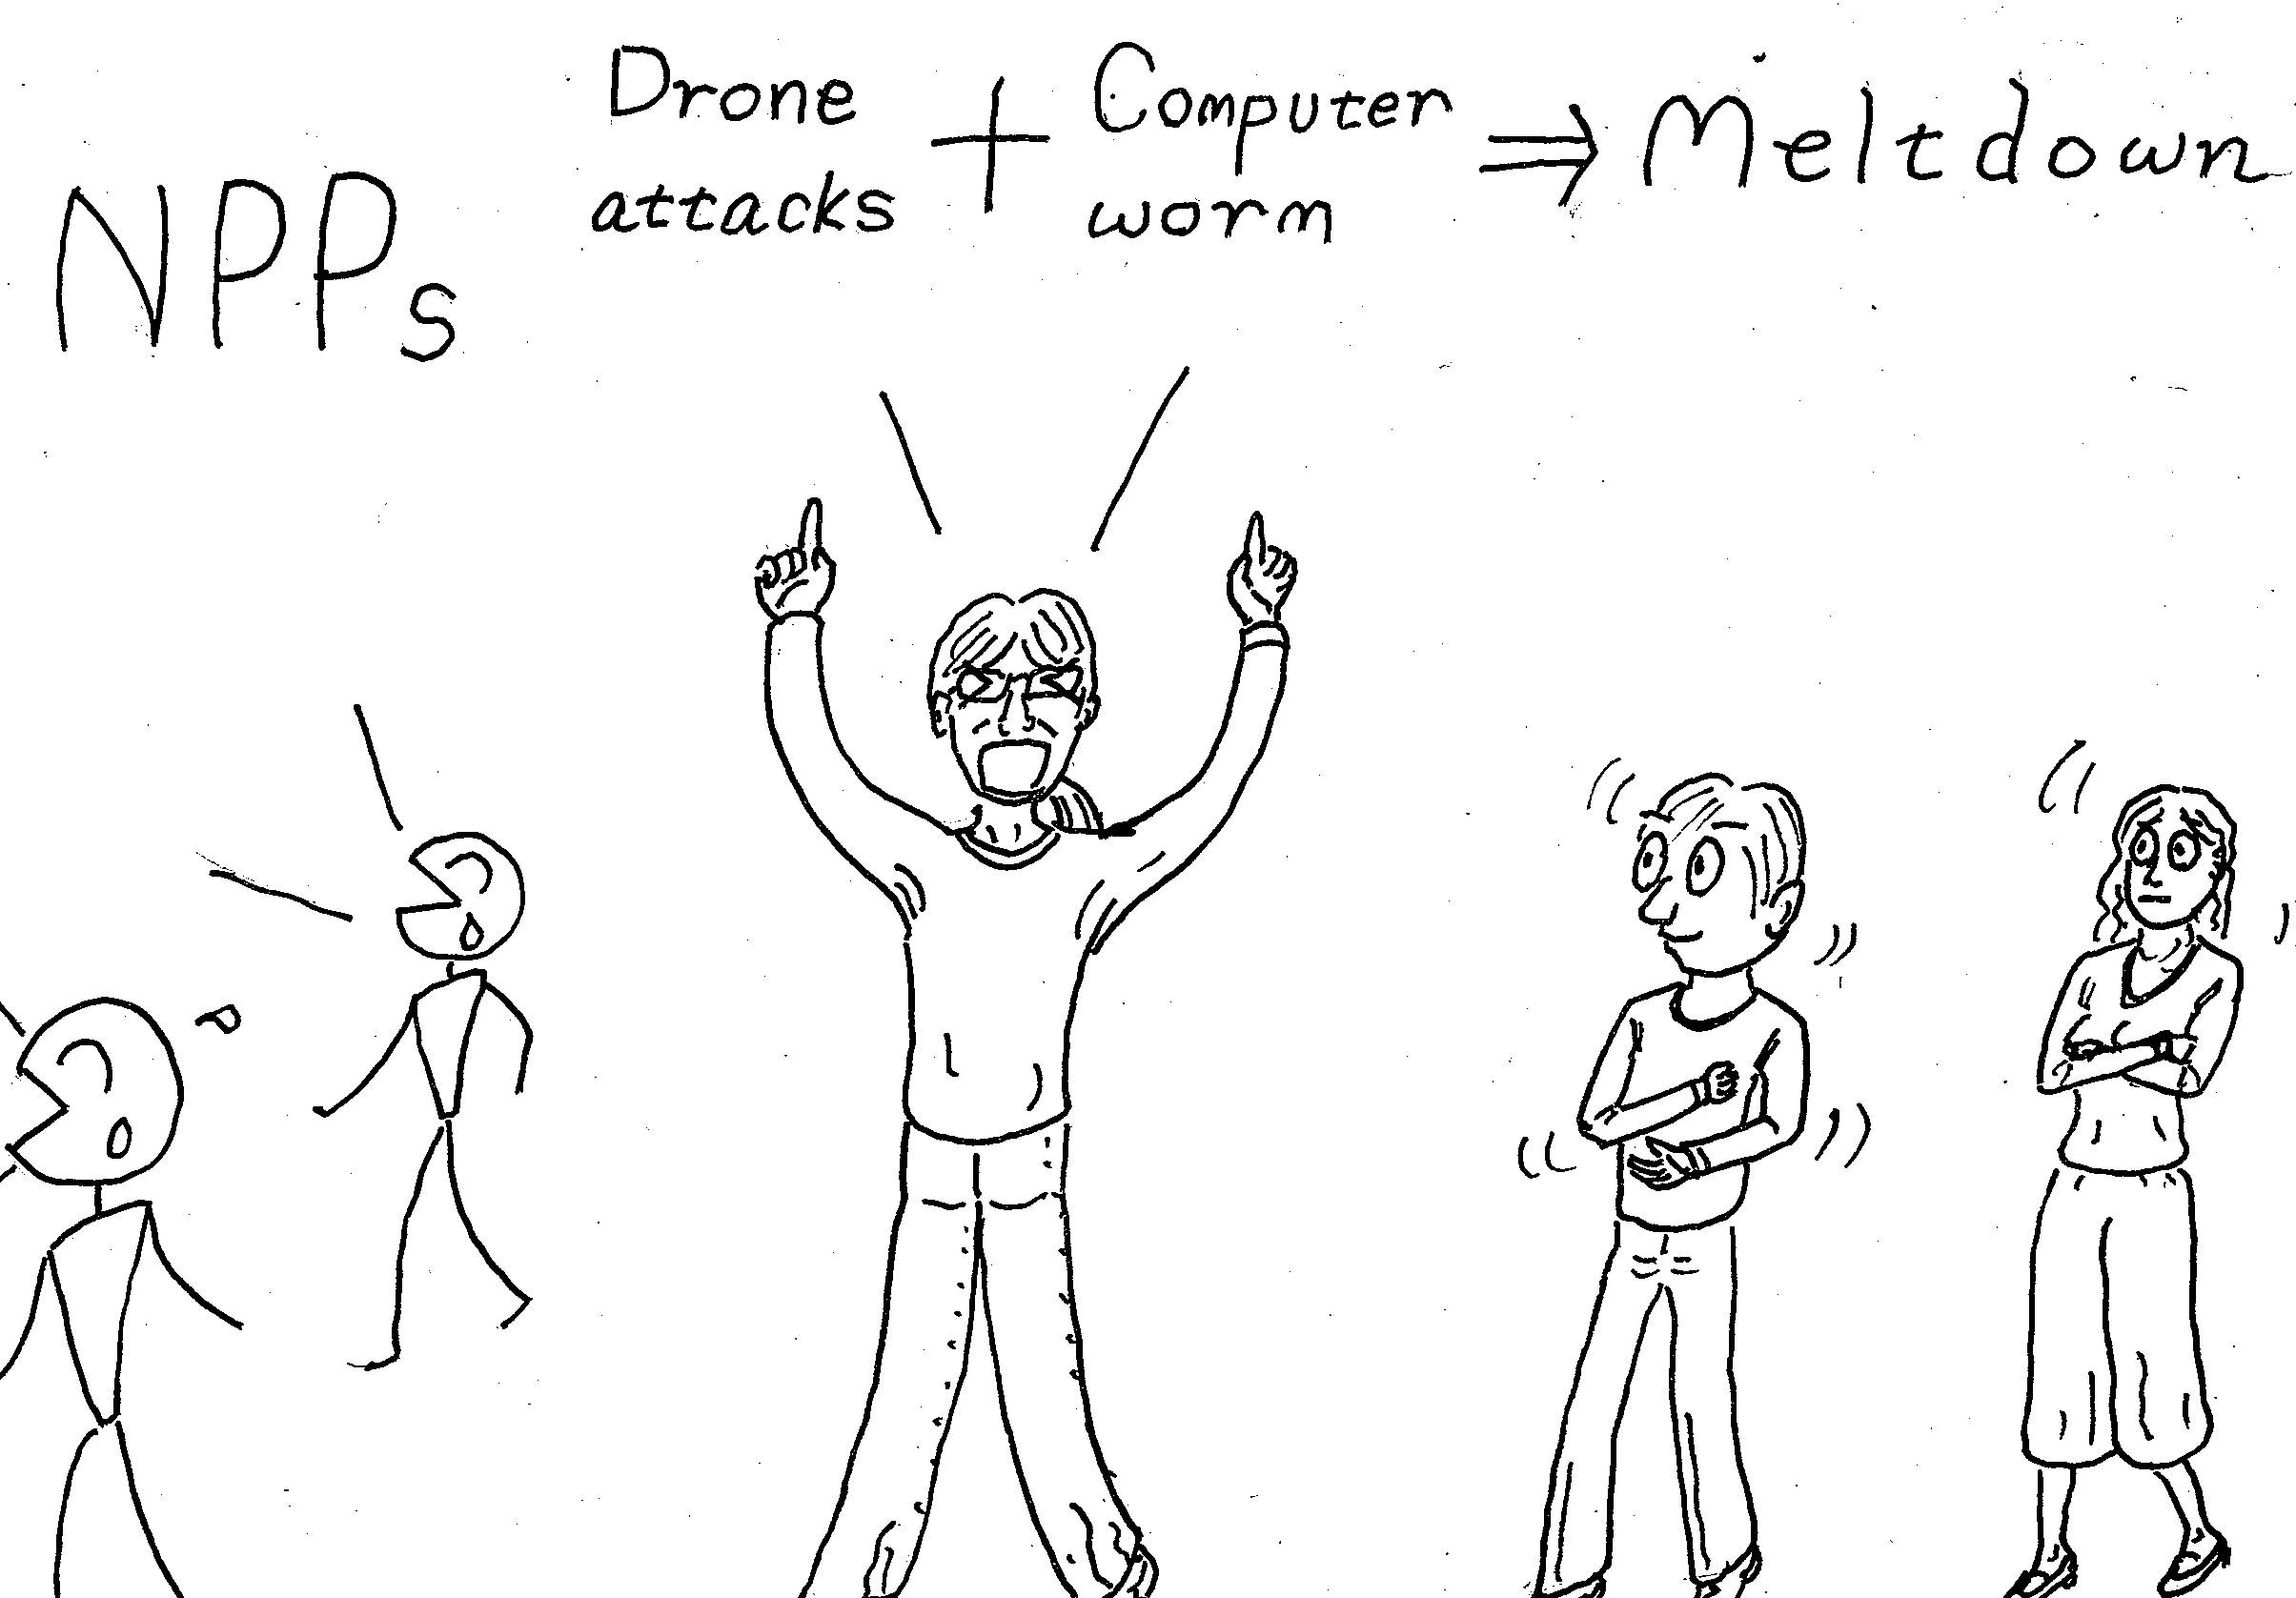 NPPs
Drone
attacks
+
Computer
worm
⇒ Meltdown